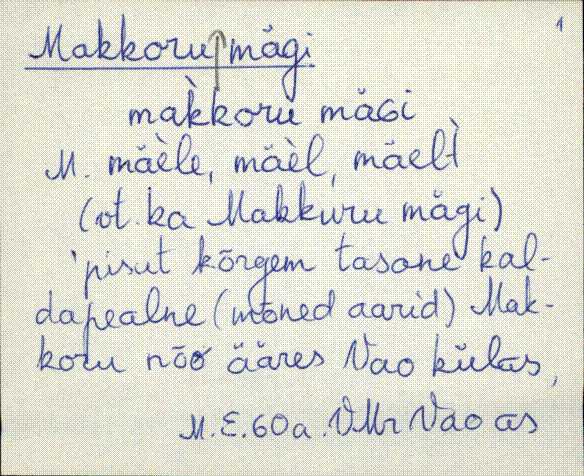 1
Makkoru mägi
mak̀koru mäGi
M. mäèle, mäèl, mäelt̀
(vt. ka Makkuru mägi)
'pisut kõrgem tasane kal-
dapealne (mõned aarid) Mak-
koru nõo ääres Vao külas,
M.E. 60a. VMr Vao as